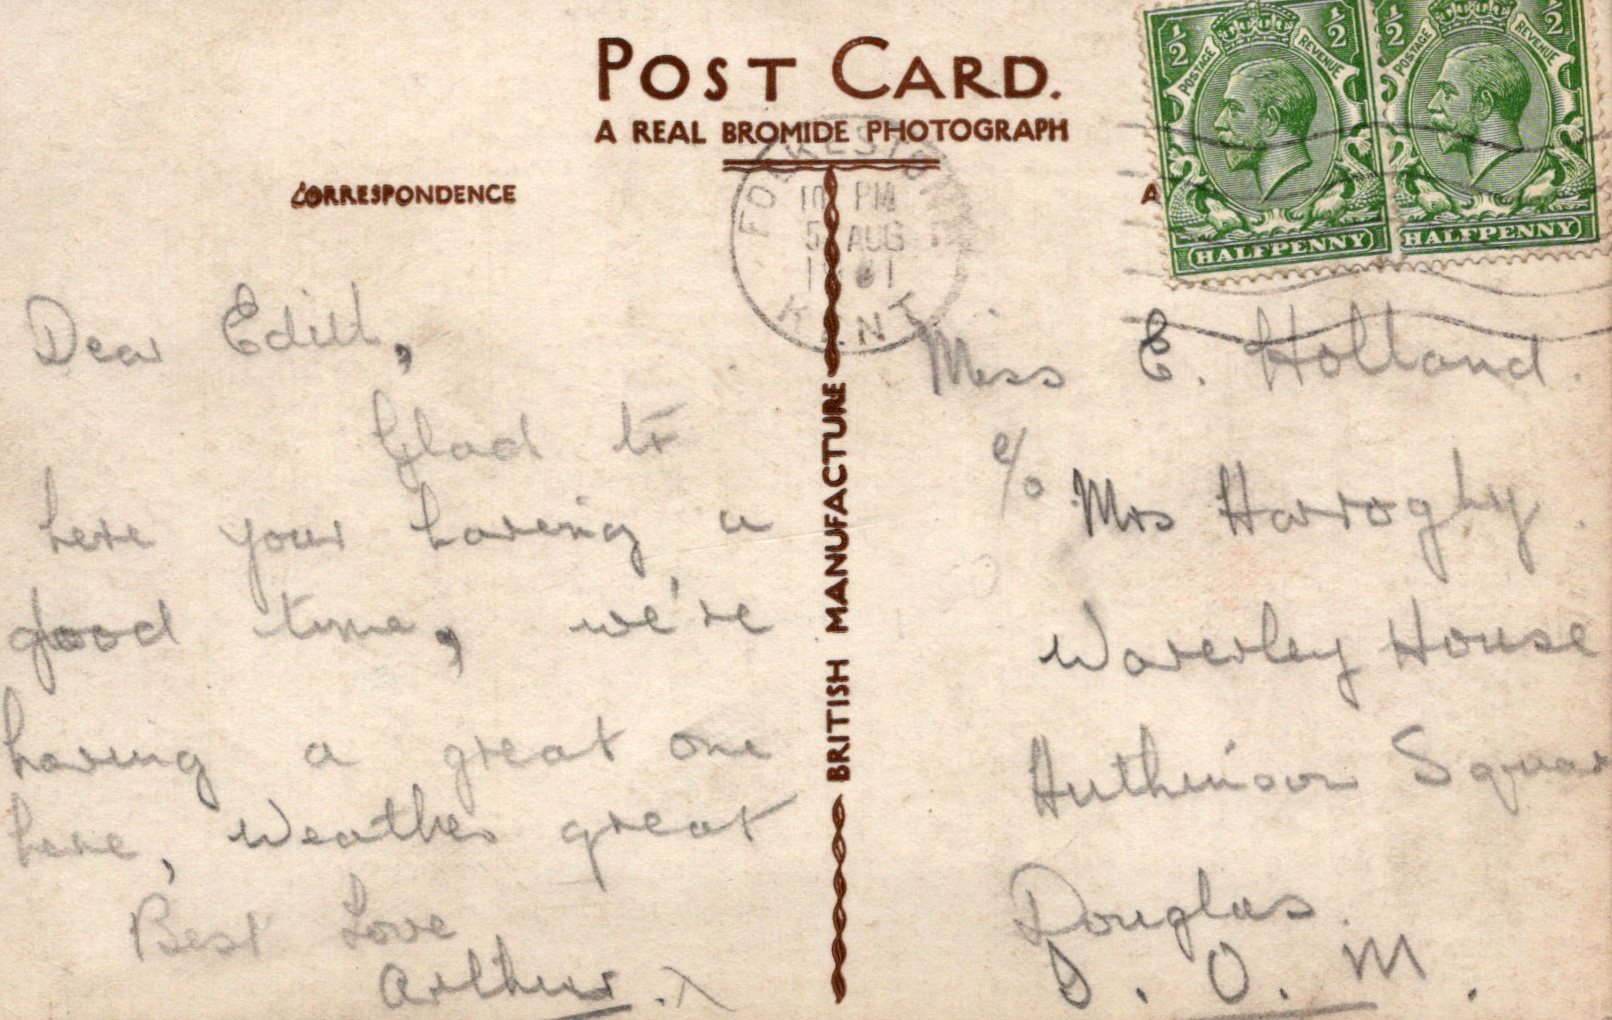 POST CARD.
A REAL BROMIDE PHOTOGRAPH
CORRESPONDENCE
A
BRITISH MANUFACTURE
½ ½
POSTAGE REVENUE
HALFPENNY
½ ½
POSTAGE REVENUE
HALFPENNY
FOLKESTONE
10 PM
5 AUG
KENT
Dear Edith,
Glad to
here your having a
good time, we're
having a great one
here, weather great
Best Love
Arthur.
Miss E. Holland.
c/o Mrs Harroghy.
Waverley House
Huthinson Squar
Douglas.
I. O. M.